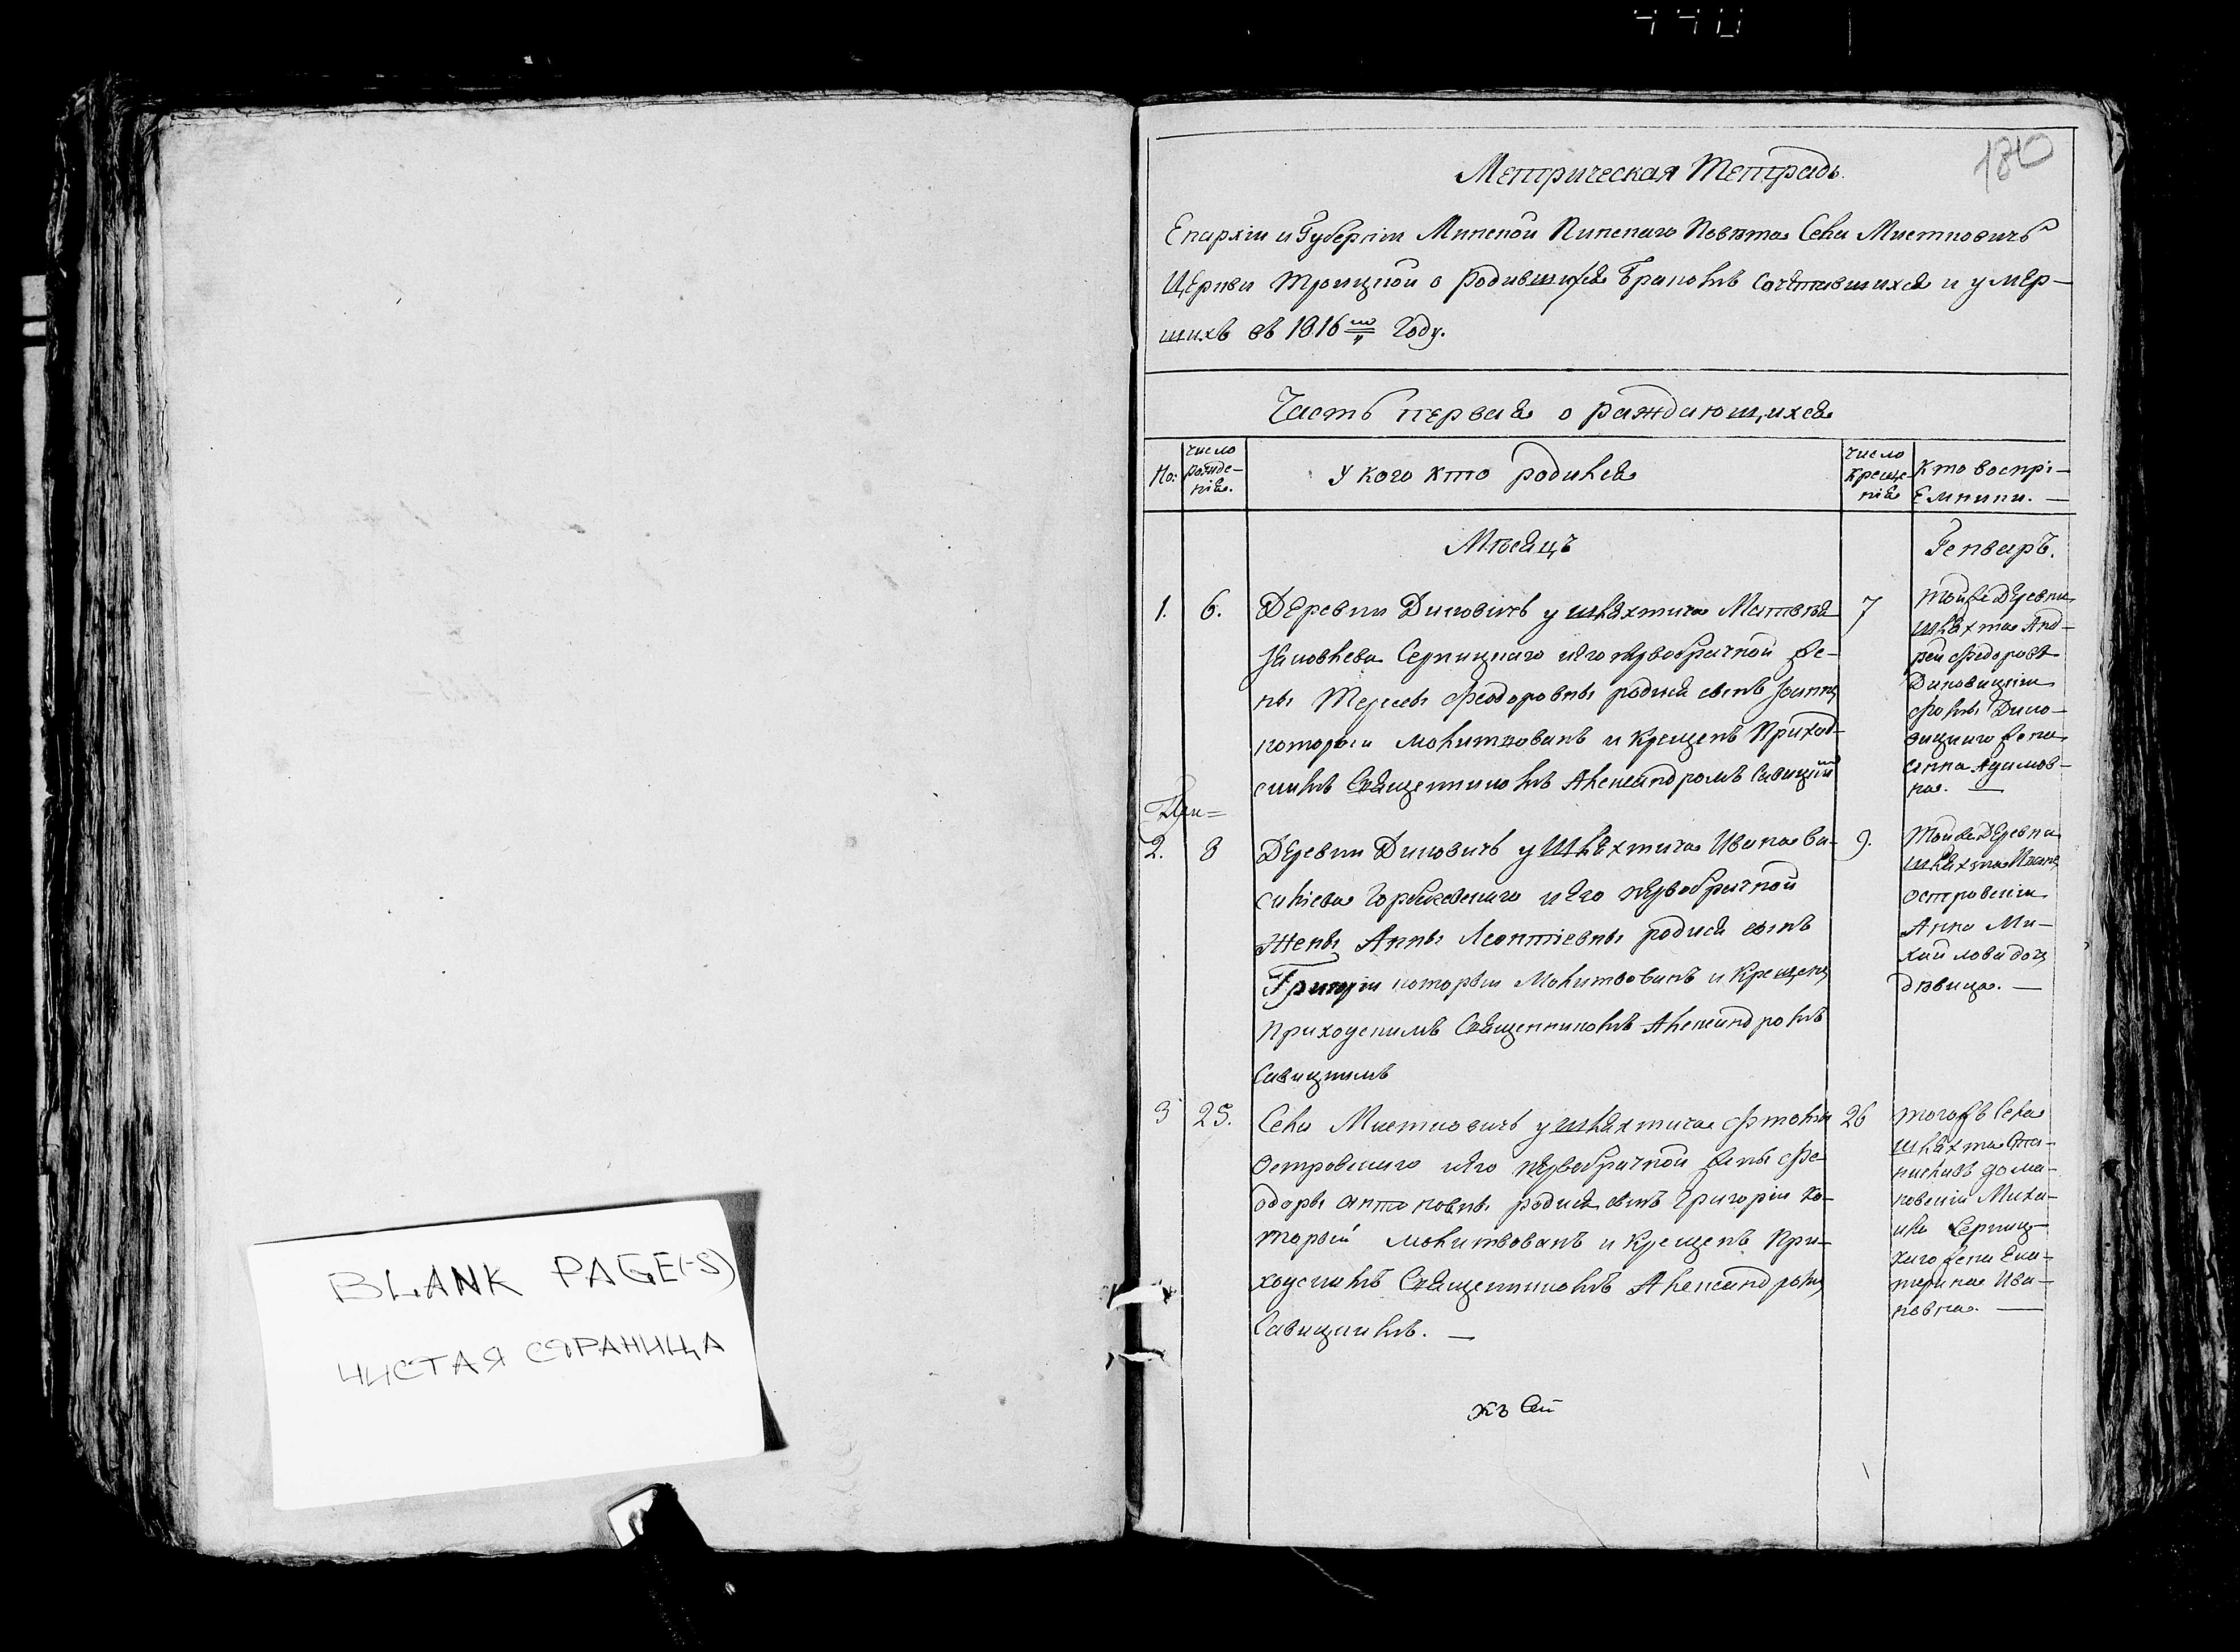 180
Метрическая Тетрадь.
Епархіи и Губерніи Минской Пинскаго Повѣта Села Местковичъ
Церкви Троицкой о Родившихся Браковъ сочетавшихся и умер-
шихъ въ 1816 мъ Году.
Часть первая о раждающихся
No:
число рожде-
нія.
У кого кто родился
число
креще
нія
кто воспрі-
емники. —
Мѣсяцъ
Генварь.
1.
6.
Деревни Диковичъ у шляхтича Матвѣя
Яковлева Серницкаго и его первобрачной же-
ны Тересы Феодоровны родися сынъ
который молитвованъ и крещенъ Приход-
скимъ Священникомъ Александромъ Савицкимъ
7
тойже Деревни
шляхта Анд-
рей Федоровъ
Диковицкій
Фомы Дико-
вицкаго жена
Анна Адамов-
на. —
2.
8
Деревни Диковичъ у шляхтича Ивана Ва-
силіева его первобрачной
жены Анны Леонтіевны родися сынъ
Григорій который молитвованъ и крещенъ
Приходскимъ Священникомъ Александромъ
Савицкимъ
9.
тойже Деревни
шляхта
Островскій
Анна Ми-
хайлова дочь
дѣвица. —
3
25.
Села Местковичъ у шляхтича
Островскаго и его первобрачной жены Фе-
одоры Антоновны родися сынъ Григорій ко-
торый молитвованъ и крещенъ При-
ходскимъ Священникомъ Александромъ
Савицкимъ. —
26
тогожъ села
шляхта Ста-
ниславъ Дома-
новскій Миха-
ила Серниц-
каго жена Ека-
терина Ива-
новна. —
BLANK PAGE(-S)
ЧИСТАЯ СТРАНИЦА